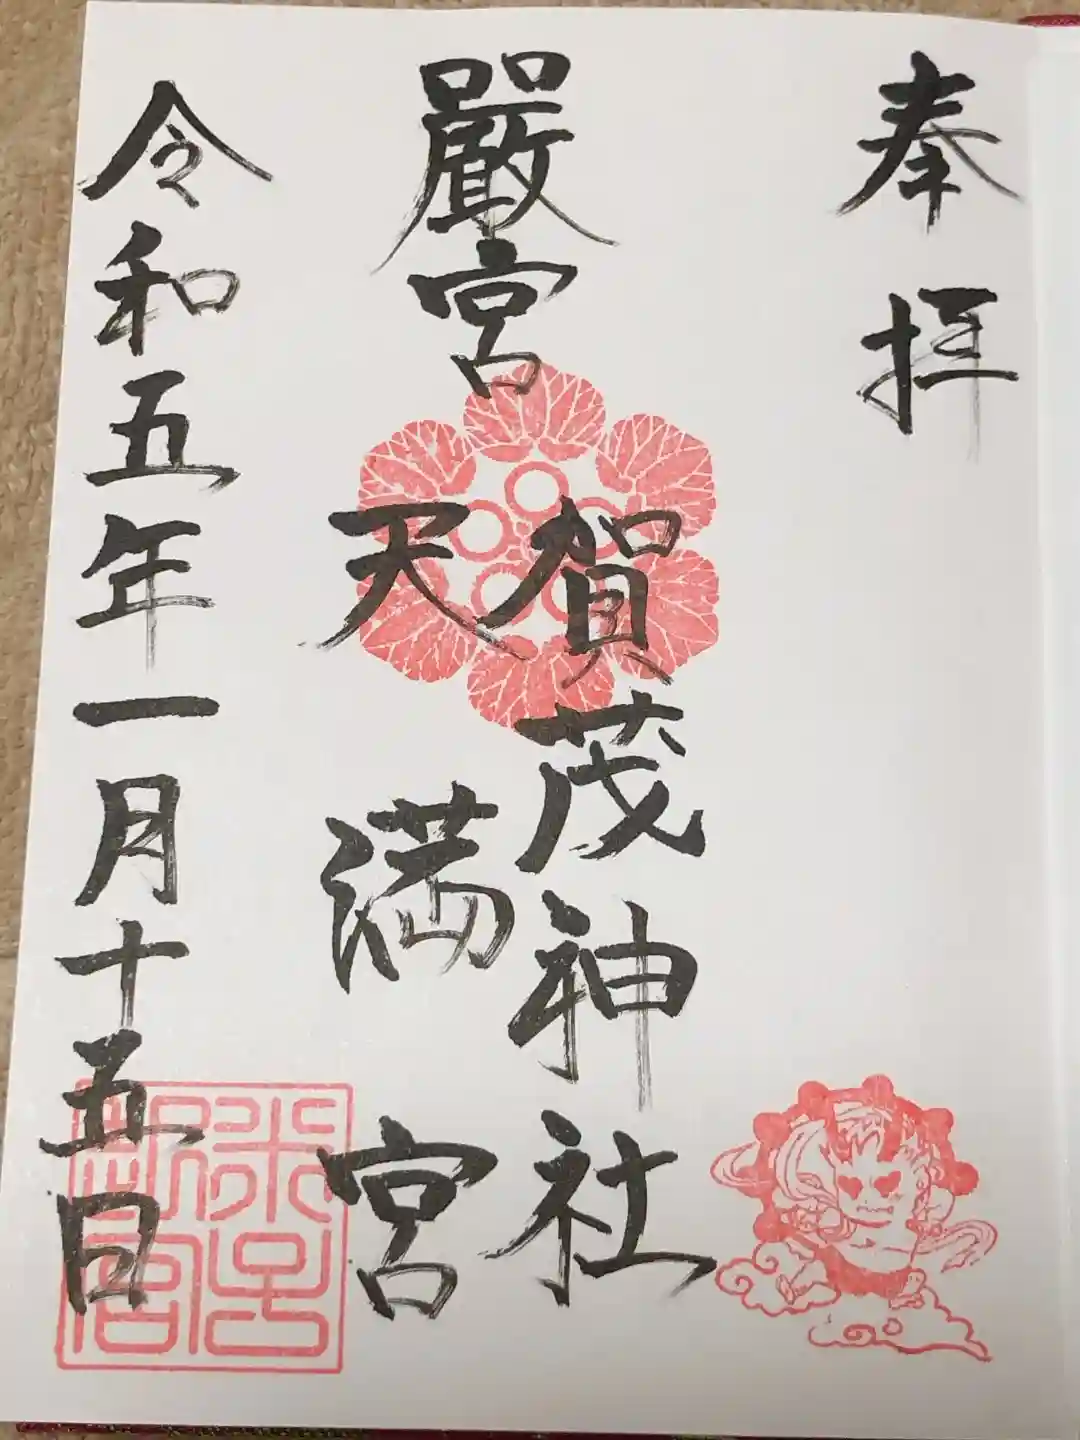 奉拝
嚴宮
賀茂神社
天満宮
令和五年一月十五日